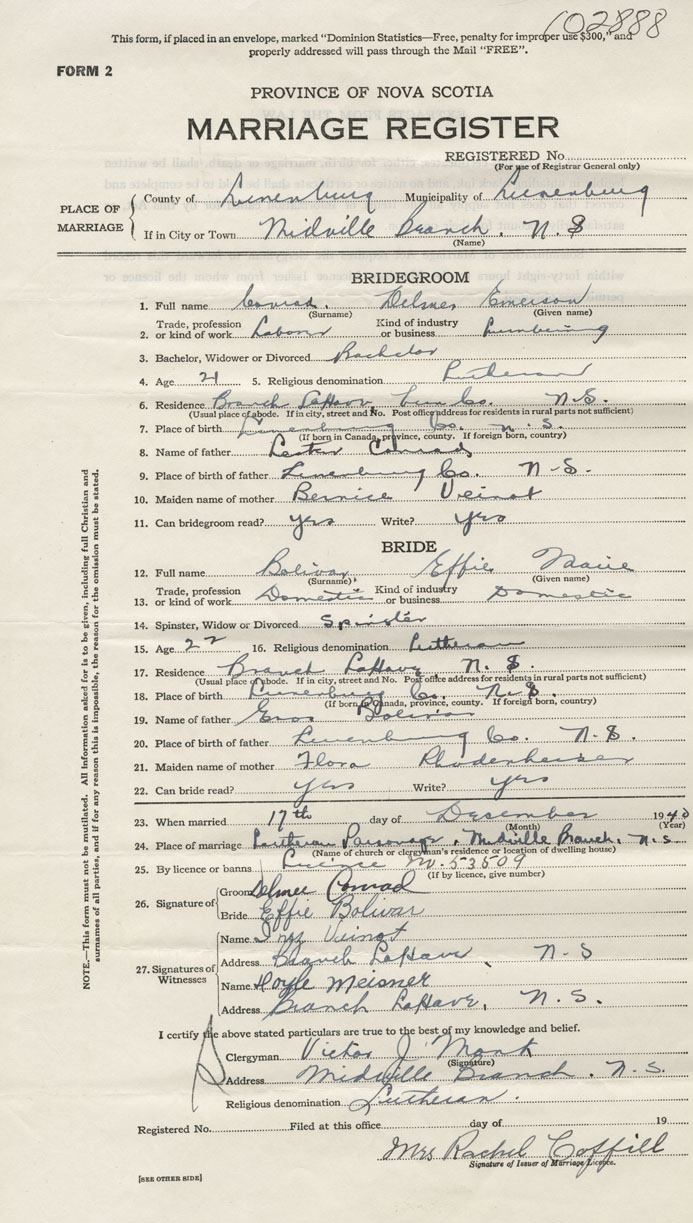 102888
This form, if placed in an envelope, marked "Dominion Statistics—Free, penalty for improper use $300," and
properly addressed will pass through the Mail "FREE".
FORM 2
PROVINCE OF NOVA SCOTIA
MARRIAGE REGISTER
REGISTERED No.
(For use of Registrar General only)
PLACE OF MARRIAGE
County of Lunenburg Municipality of Lunenburg
If in City or Town Midville Branch, N.S
(Name)
BRIDEGROOM
1. Full name Conrad, Delmer Emerson
(Surname) (Given name)
2. Trade, profession or kind of work Laborer Kind of industry or business Lumbering
3. Bachelor, Widower or Divorced Bachelor
4. Age 21 5. Religious denomination Lutheran
6. Residence Branch LaHave, Lun Co. N.S.
(Usual place of abode. If in city, street and No. Post office address for residents in rural parts not sufficient)
7. Place of birth Lunenburg Co. N.S.
(If born in Canada, province, county. If foreign born, country)
8. Name of father Lester Conrad
9. Place of birth of father Lunenburg Co. N-S.
10. Maiden name of mother Bernice Veinot
11. Can bridegroom read? yes Write? yes
BRIDE
12. Full name Bolivar, Effie Marie
(Surname) (Given name)
13. Trade, profession or kind of work Domestic Kind of industry or business Domestic
14. Spinster, Widow or Divorced Spinster
15. Age 22 16. Religious denomination Lutheran
17. Residence Branch LaHave, N.S.
(Usual place of abode. If in city, street and No. Post office address for residents in rural parts not sufficient)
18. Place of birth Lunenburg Co. N.S.
(If born in Canada, province, county. If foreign born, country)
19. Name of father Bolivar
20. Place of birth of father Lunenburg Co. N.S.
21. Maiden name of mother Flora Rhodenheiser
22. Can bride read? yes Write? yes
23. When married 17th day of December 1940
(Month) (Year)
24. Place of marriage Lutheran Parsonage, Midville Branch, N.S
(Name of church or clergyman's residence or location of dwelling house)
25. By licence or banns Licence No. 53509
(If by licence, give number)
26. Signature of
Groom Delmer Conrad
Bride Effie Bolivar
27. Signatures of Witnesses
Name Veinot
Address Branch LaHave, N-S
Name Hoyle Meisner
Address Branch LaHave, N.S.
I certify the above stated particulars are true to the best of my knowledge and belief.
Clergyman Victor J. Monk
(Signature)
Address Midville Branch, N.S.
Religious denomination Lutheran.
Registered No. Filed at this office day of 19
Mrs Rachel Coffill
Signature of Issuer of Marriage Licence.
[SEE OTHER SIDE]
NOTE.—This form must not be mutilated. All Information asked for is to be given, including full Christian and
surnames of all parties, and if for any reason this is impossible, the reason for the omission must be stated.